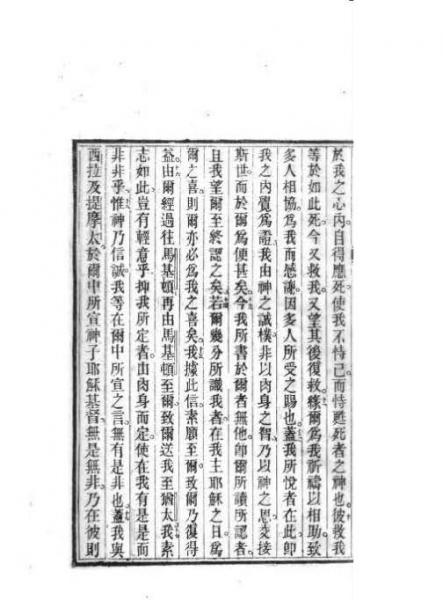 於我之心內自得應死使我不恃己而恃甦死者之神也彼救我
等於如此死今又救我又望其後復救緣爾為我祈禱以相助致
多人相協為我而感謝因多人所受之賜也蓋我所悅者在此卽
我之內質為證我由神之誠樸非以肉身之智乃以神之恩交接
斯世而於爾為便甚矣今我所書於爾者無他卽爾所讀所認者
且我望爾至終認之矣若爾幾分所識我者在我主耶穌之日為
爾之喜則爾亦必為我之喜矣我據此信素願至爾致爾乃復得
益由爾經過往馬基頓再由馬基頓至爾致爾送我至猶太我素
志如此豈有輕意乎抑我所定者由肉身而定使在我有是是而
非非乎惟神乃信誠我等在爾中所宣之言無有是非也蓋我與
西拉及提摩太於爾中所宣神子耶穌基督無是無非乃在彼則